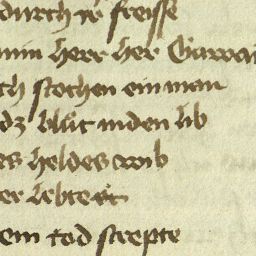 durch ir freisse
min herr her Gawan
ch stochen ein man
dz blůt in den lib
es heldes wib
er lebte
em tod strepte